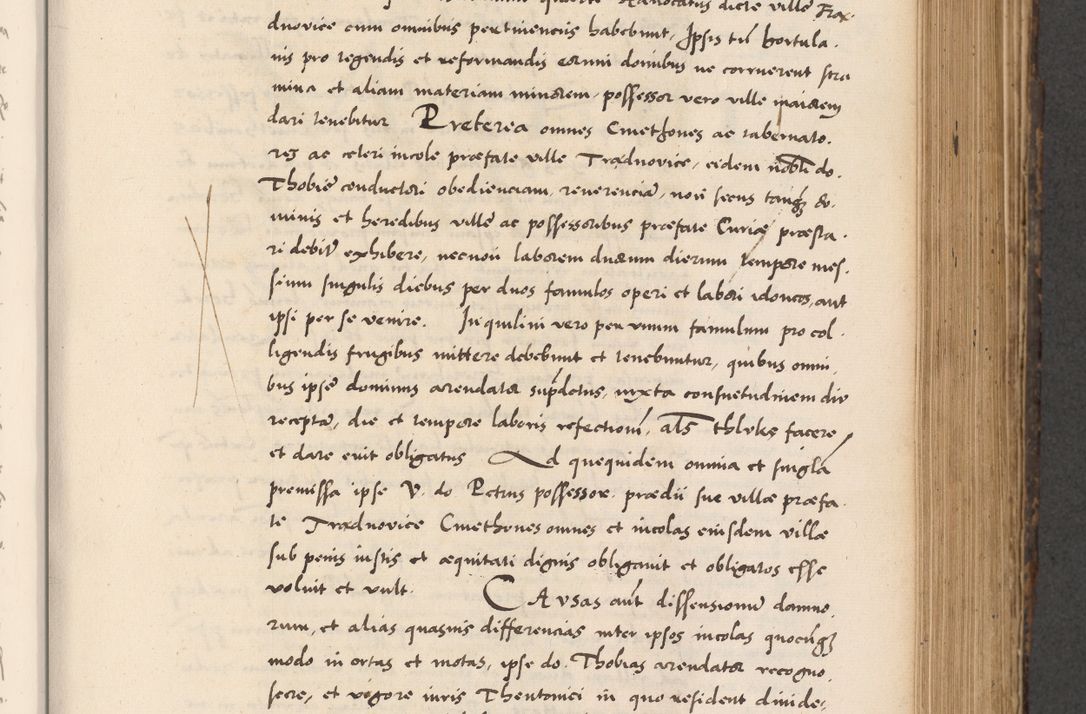 Advocatus dicte ville Trax-
dnovice cum omnibus pertinenciis habebunt, Ipsis tn̄ hortula-
nis pro tegendis et reformandis earum domibus ne corruerent stra
mina et aliam materiam minorem, possessor vero ville maiorem
dari tenebitur Preterea omnes Cmethones ac tabernato-
res ac celeri incole præfate ville Tradnovice, eidem nobli do.
Thobie conductori obedienciam, reverenciā, non secus tanq̄ do-
minis et heredibus ville ac possessoribus præfate Curiæ præsta-
ri debitē exhibere, necnon laborem duarum dierum tempore mes-
sium singulis diebus per duos famulos operi et labori idoneos, aut
ipsi per se venire. Inquilini vero per unum famulum pro col-
ligendis frugibus mittere debebunt et tenebuntur, quibus omni-
bus ipse dominus arendator supdctus, iuxta consuetudinem diu
receptā, die et tempore laboris refectionē, als thluke facere
et dare erit obligatus Ad quequidem omnia et singla
premissa ipse V. do Petrus possessor prædii sue villæ præfa-
te Tradnovice Cmethones omnes et incolas eiusdem villæ
sub penis iustis et æquitati dignis obligavit et obligatos esse
voluit et vult. CAvsas aūt dissensionū damno-
rum, et alias quasuis differencias inter ipsos incolas quocūq̄
modo in ortas et motas, ipse do. Thobias arendator recogno-
scere, et vigore iuris Theutonici in quo resident divide-